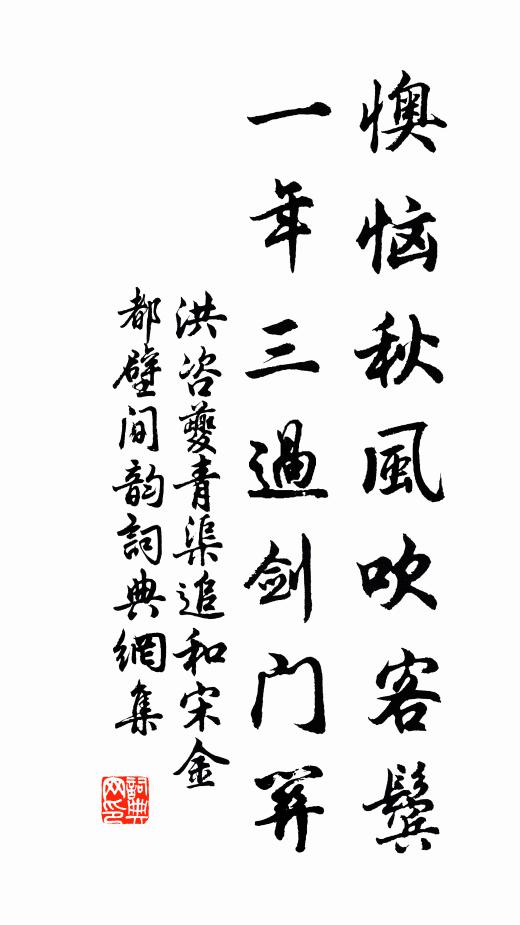 懊恼秋風吹客鬓
一年三過剑门関
洪咨夔青渠追和宋金
都壁间韵詞典網集
詞典网印